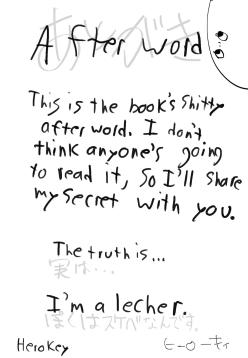 あとがき
After word
This is the book's shitty
after word. I don't
think anyone's going
to read it, so I'll share
my secret with you.
The truth is...
実は…
I'm a lecher.
ぼくはスケベなんです。
HeroKey
ヒーローキィ